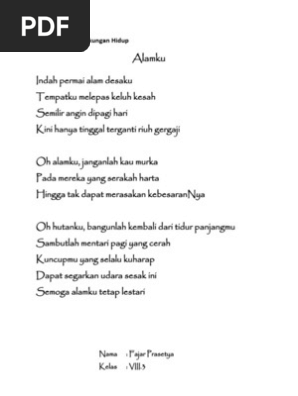 PDF
kungan Hidup
Alamku
Indah permai alam desaku
Tempatku melepas keluh kesah
Semilir angin dipagi hari
Kini hanya tinggal terganti riuh gergaji
Oh alamku, janganlah kau murka
Pada mereka yang serakah harta
Hingga tak dapat merasakan kebesaranNya
Oh hutanku, bangunlah kembali dari tidur panjangmu
Sambutlah mentari pagi yang cerah
Kuncupmu yang selalu kuharap
Dapat segarkan udara sesak ini
Semoga alamku tetap lestari
Nama : Pajar Prasetya
Kelas : VIII 3